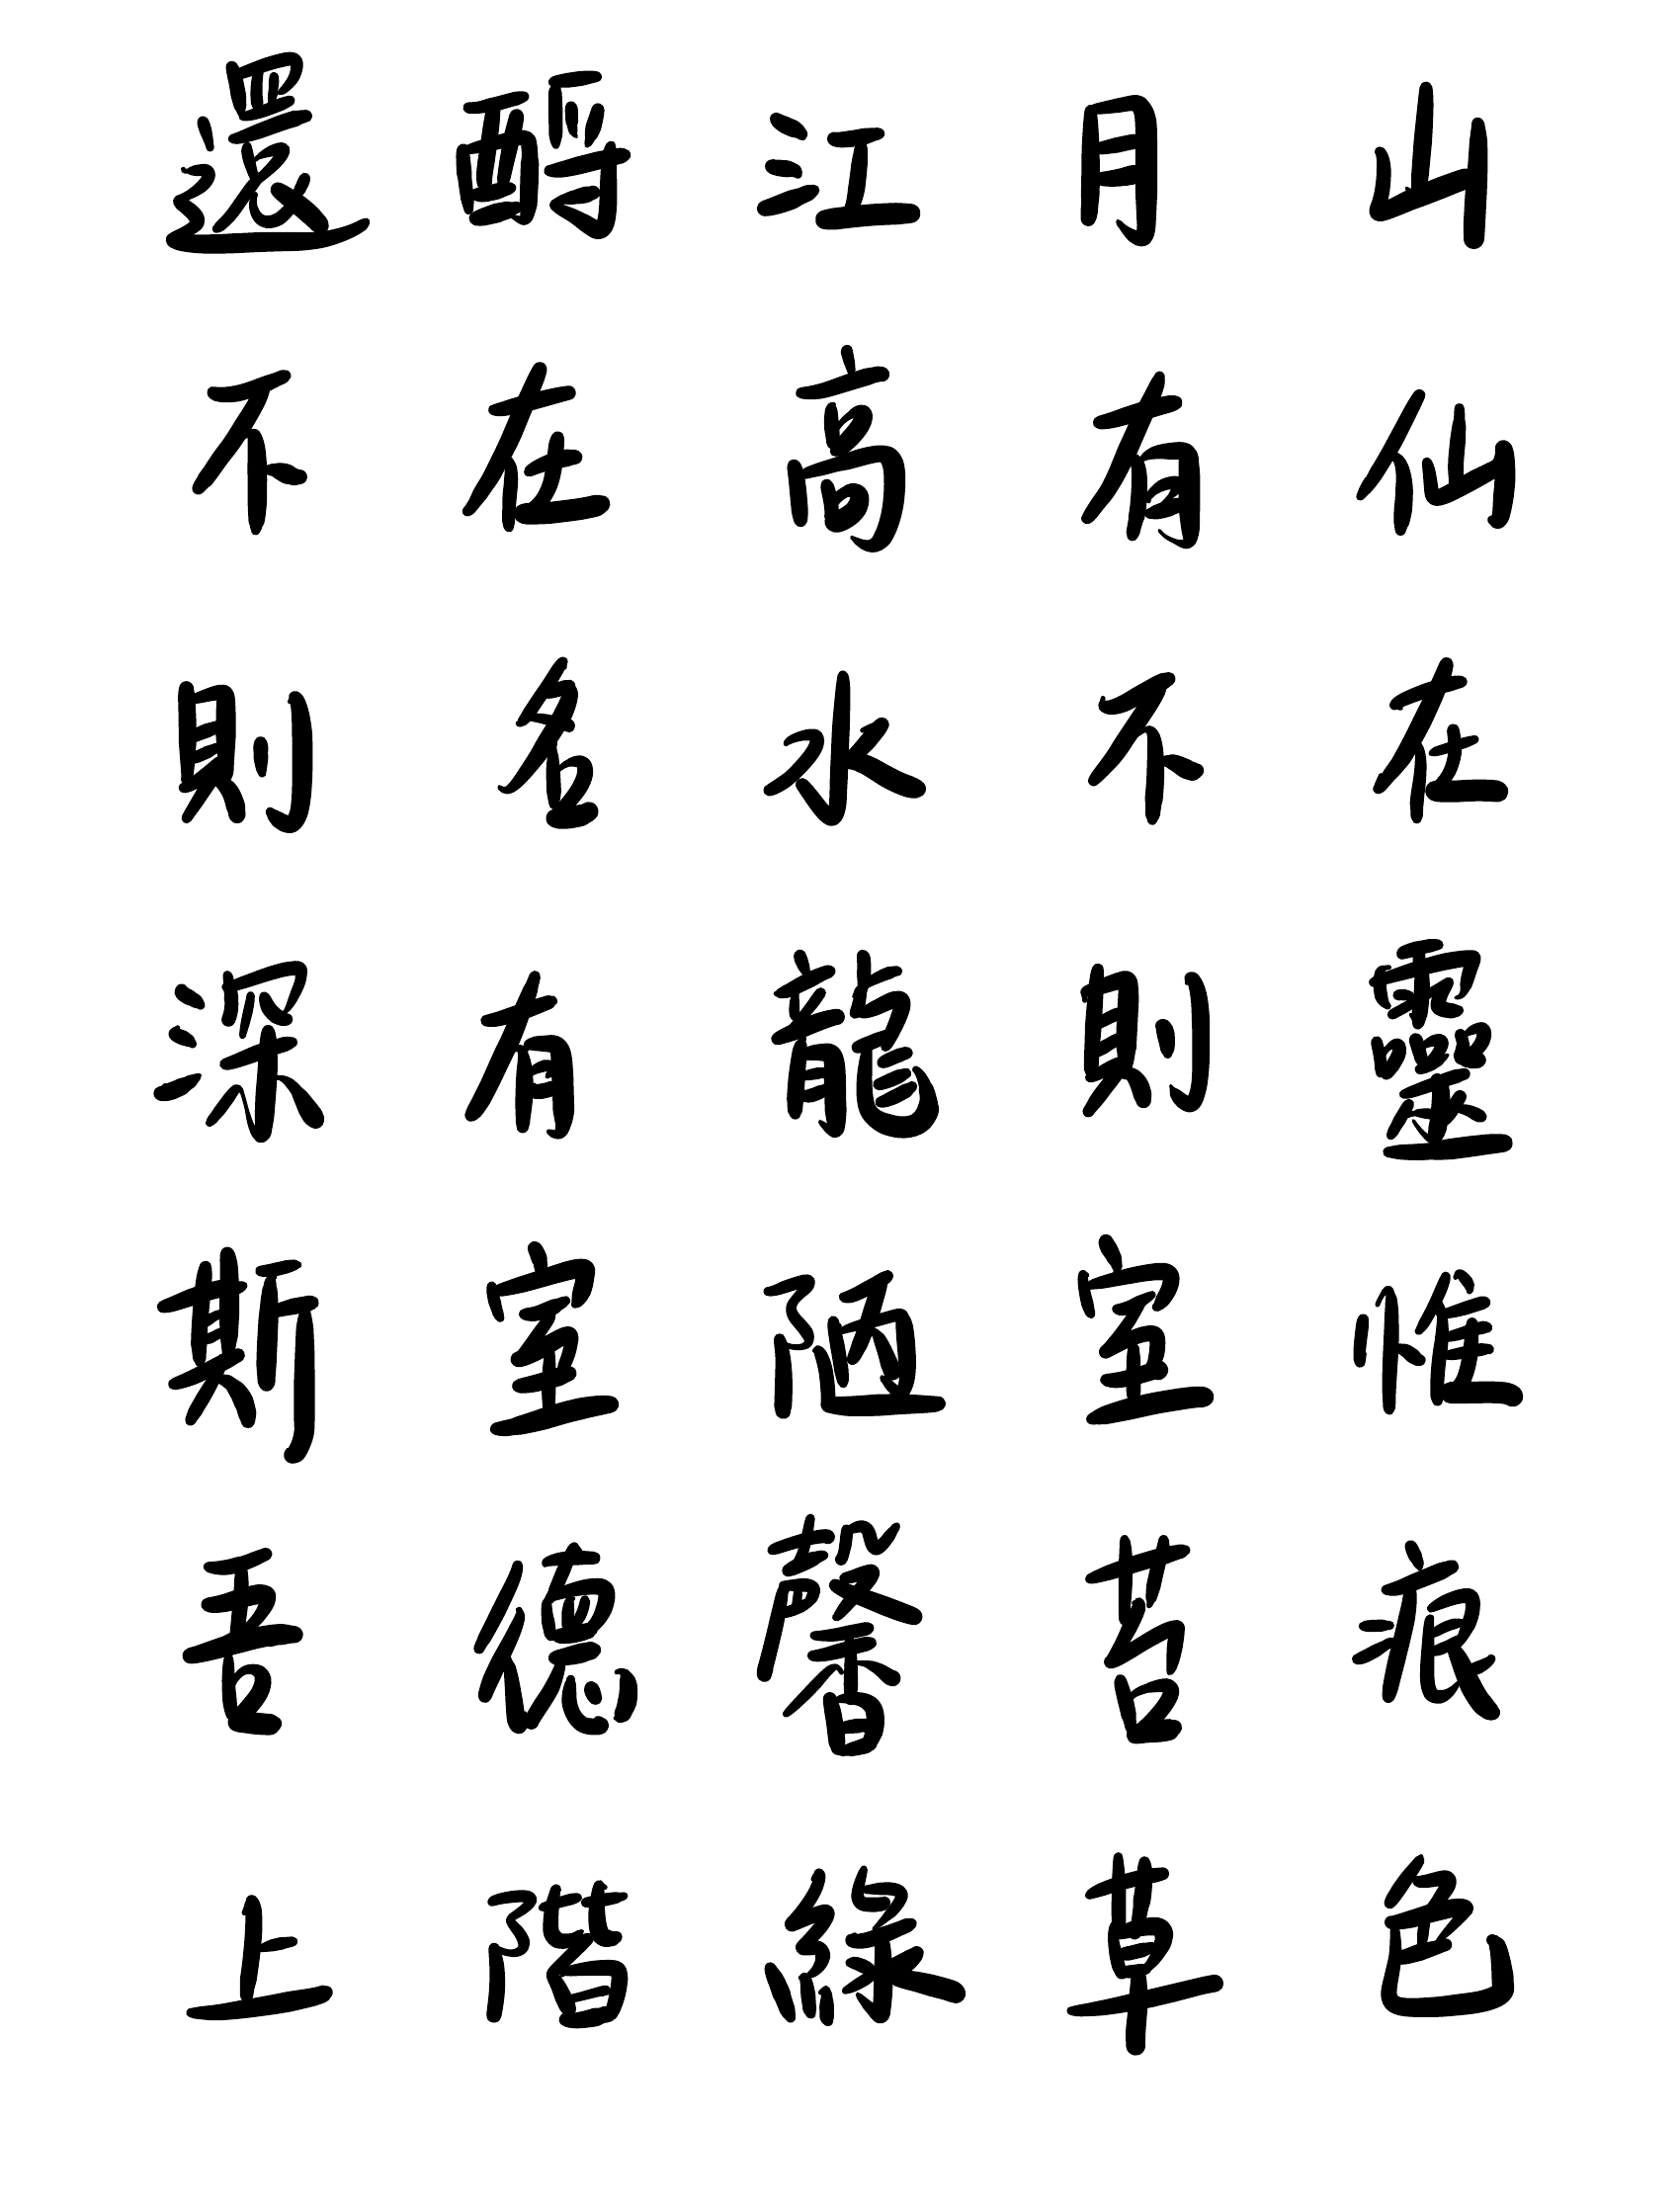 還酹江月山
不在高有仙
則名水不在
深有龍則靈
斯室陋室惟
吾德馨苔痕
上階綠草色